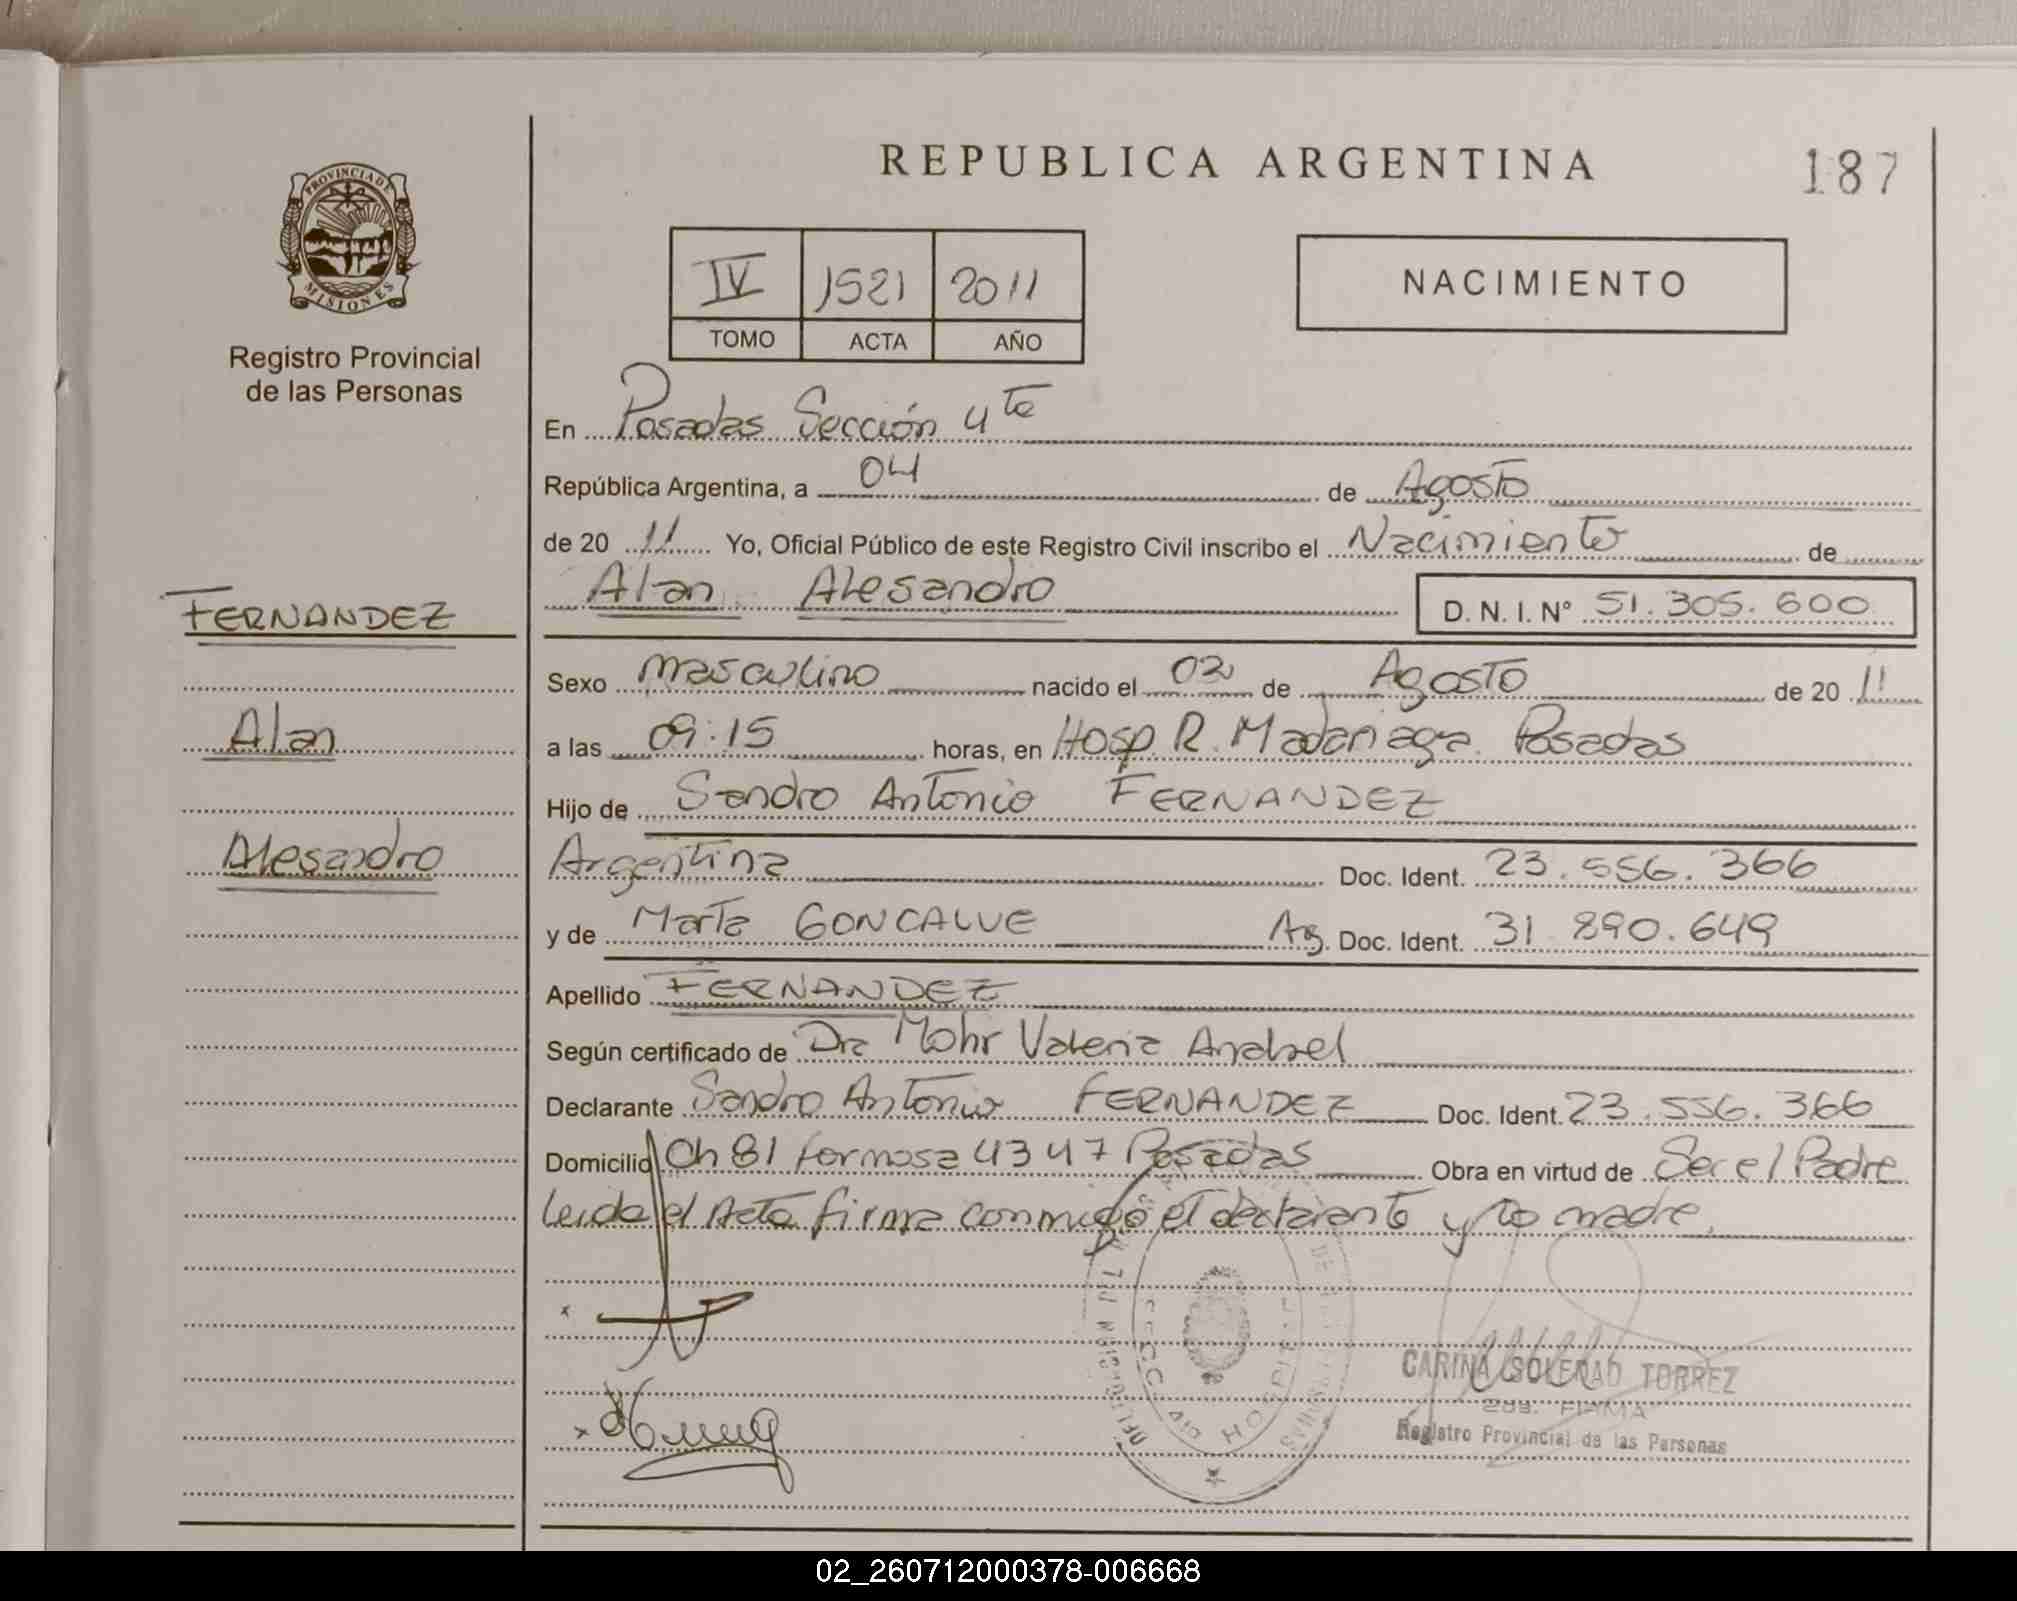 REPUBLICA ARGENTINA
187
PROVINCIA DE
MISIONES
Registro Provincial
de las Personas
IV 1521 2011
TOMO ACTA AÑO
NACIMIENTO
En Posadas Sección 4ta
República Argentina, a 04 de Agosto
de 20 11 Yo, Oficial Público de este Registro Civil inscribo el Nacimiento de
Alan Alesandro D. N. I. Nº 51.305.600
FERNANDEZ
Alan
Alesandro
Sexo masculino nacido el 02 de Agosto de 20 11
a las 09:15 horas, en Hosp. R. Madariaga. Posadas
Hijo de Sandro Antonio FERNANDEZ
Argentina Doc. Ident. 23.556.366
y de Marta GONCALVE Ag. Doc. Ident. 31 890.649
Apellido FERNANDEZ
Según certificado de Dra Mohr Valeria Anabel
Declarante Sandro Antonio FERNANDEZ Doc. Ident. 23.556.366
Domicilio Ch 81 formosa 4347 Posadas Obra en virtud de Ser el Padre
Leida el Acta firma conmigo el declarante y la madre.
CARINA SOLEDAD TORREZ
FIRMA
Registro Provincial de las Personas
02_260712000378-006668